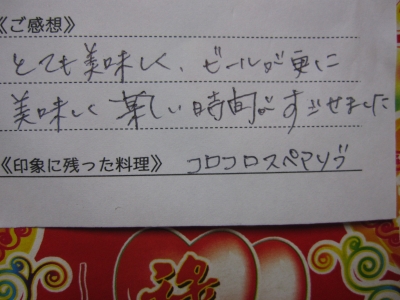 《ご感想》
とても美味しく、ビールが更に
美味しく楽しい時間がすごせました
《印象に残った料理》 コロコロスペアリブ